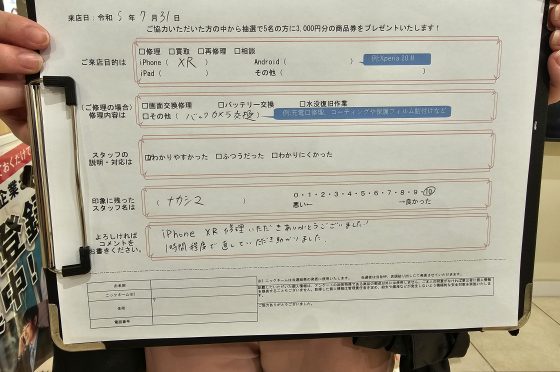 来店日：令和 5 年 7 月 31 日
ご協力いただいた方の中から抽選で5名の方に3,000円分の商品券をプレゼントいたします！
ご来店目的は
□修理 □買取 □再修理 □相談
iPhone（ XR ） Android（ ） 例:Xperia 20 II
iPad（ ） その他（ ）
（ご修理の場合）
修理内容は
□画面交換修理 □バッテリー交換 □水没復旧作業
□その他（ バックカメラ交換 ） 例:充電口修理、コーティングや保護フィルム貼付けなど
スタッフの
説明・対応は
□わかりやすかった □ふつうだった □わかりにくかった
印象に残った
スタッフ名は
（ ナカシマ ）
0・1・2・3・4・5・6・7・8・9・10
悪い← →良かった
よろしければ
コメントを
お書きください。
iPhone XR 修理いただきありがとうございました！
1時間程度で直していただき助かりました。
お名前
ニックネーム※1
住所
〒
電話番号
ご協力ありがとうございました。